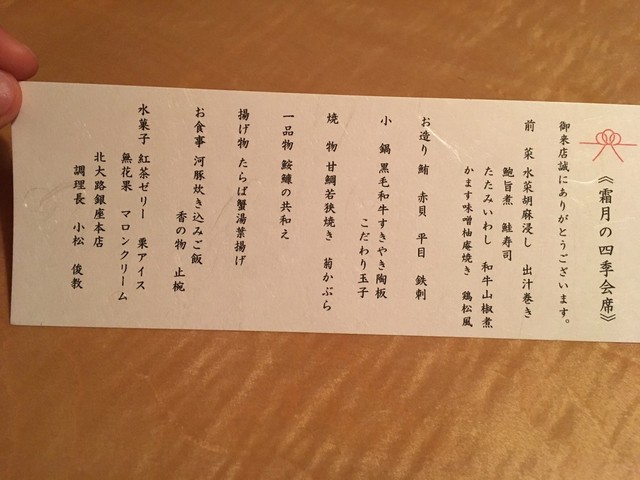 《霜月の四季会席》
御来店誠にありがとうございます。
前　菜 水菜胡麻浸し　出汁巻き
鮑旨煮　鮭寿司
たたみいわし　和牛山椒煮
かます味噌柚庵焼き　鶏松風
お造り 鮪　赤貝　平目　鉄刺
小　鍋 黒毛和牛すきやき陶板
こだわり玉子
焼　物 甘鯛若狭焼き　菊かぶら
一品物 鮟鱇の共和え
揚げ物 たらば蟹湯葉揚げ
お食事 河豚炊き込みご飯
香の物　止椀
水菓子 紅茶ゼリー　栗アイス
無花果　マロンクリーム
北大路銀座本店
調理長　小松　俊教